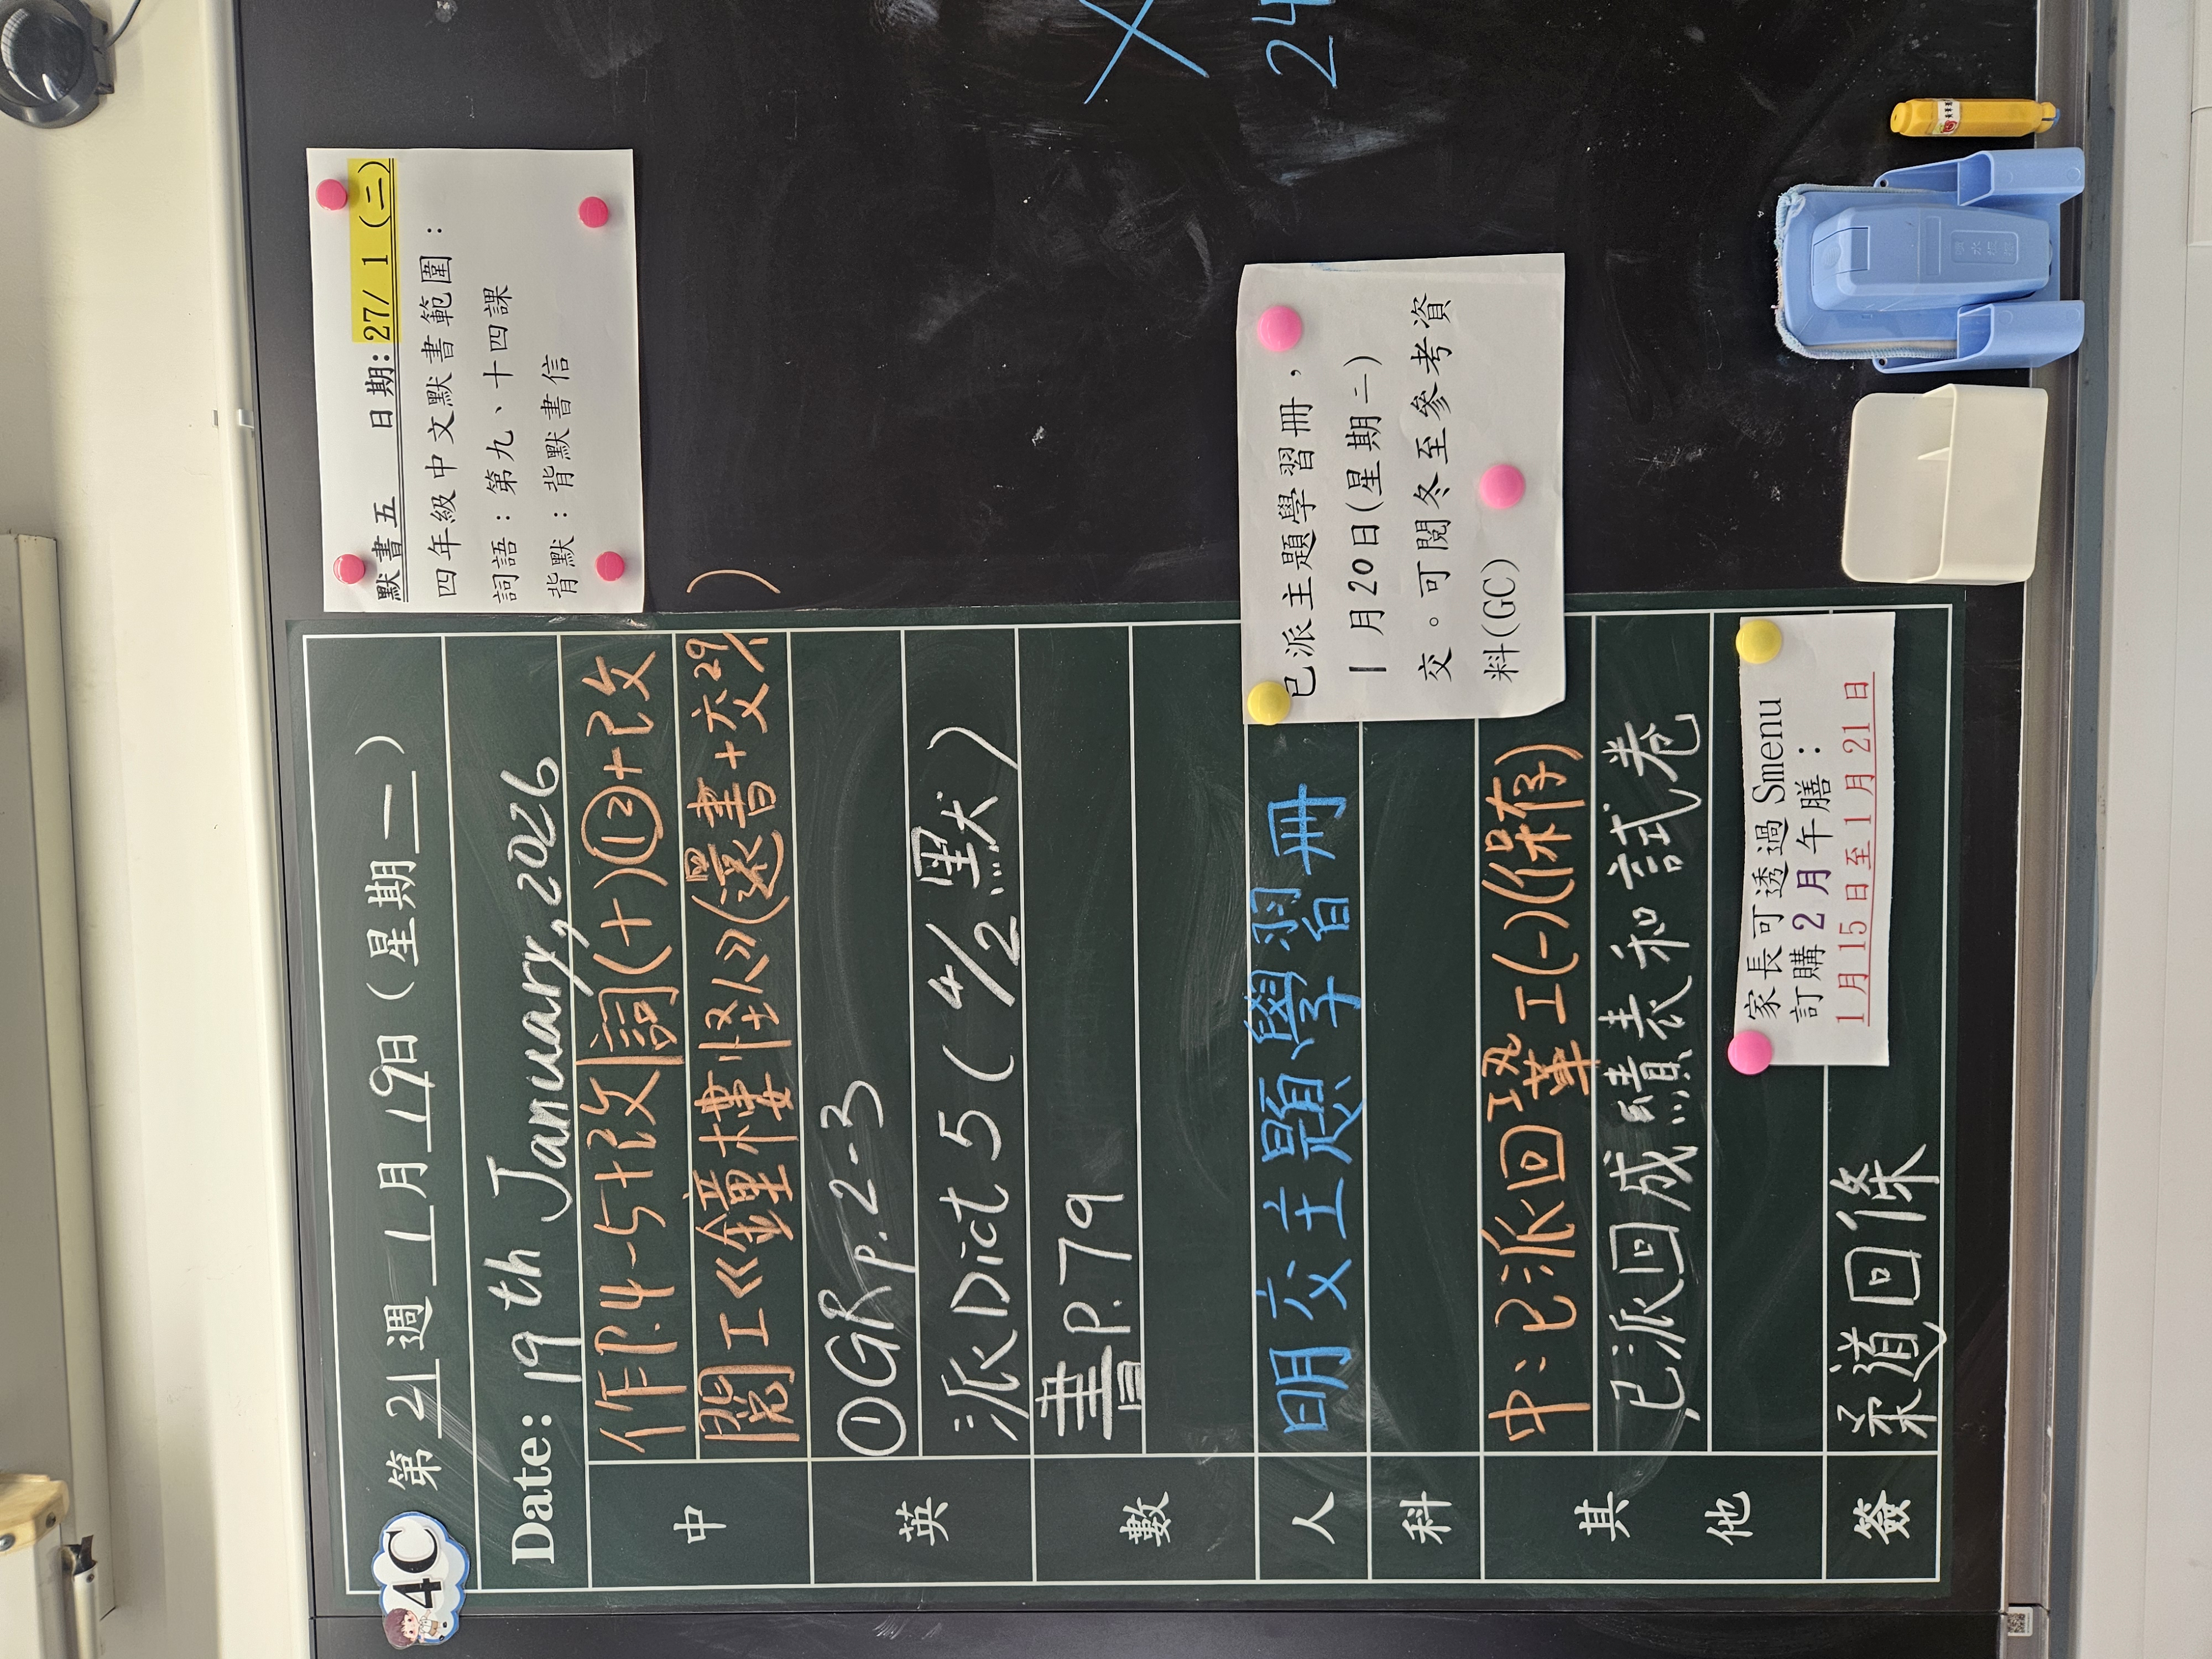 4C
第 21 週 1 月 19 日 ( 星 期 一 )
Date: 19 th January, 2026
中
作P.4-5+改 詞(十)①②+改
閱工《鐘樓怪人》(還書+交 29/1)
英
①GR p.2-3
派Dict 5 ( 4/2 默 )
數
書P.79
人
明交主題學習冊
科
其他
中:已派回鞏工(一)(保存)
已派回成績表和試卷
簽
柔道回條
默書五 日期:27/ 1 (二)
四年級中文默書範圍:
詞語:第九、十四課
背默:背默書信
已派主題學習冊,
1月20日(星期二)
交。可閱冬至參考資
料(GC)
家長可透過 Smenu
訂購 2 月午膳:
1 月 15 日至 1 月 21 日
24